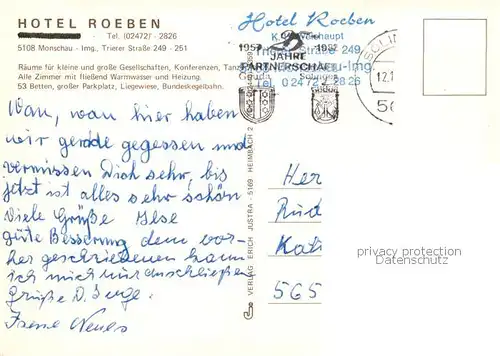 HOTEL ROEBEN
Tel. (02472) - 2826
5108 Monschau - Img., Trierer Straße 249 - 251
Räume für kleine und große Gesellschaften, Konferenzen, Tanz
Alle Zimmer mit fließend Warmwasser und Heizung.
53 Betten, großer Parkplatz, Liegewiese, Bundeskegelbahn.
Hotel Roeben
K. Weichaupt
Trierer Straße 249
Monschau-Img.
Tel. 02472 / 2826
1957 1982
JAHRE
PARTNERSCHAFT
Gouda Solingen
SOLIN
12.1
56
Wau, wau hier haben
wir gerade gegessen und
vermissen Dich sehr, bis
jetzt ist alles sehr schön
Viele Grüße Ilse
gute Besserung dem vor-
her geschriebenen kann
ich mich nur anschließen
Grüße D. Inge.
Irene
VERLAG ERICH JUSTRA - 5169 HEIMBACH 2
Her
Rud
Kat
565
privacy protection
Datenschutz